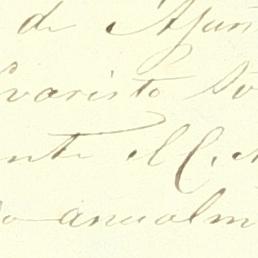 de Ayun
Evaristo
nte el C.
anualm